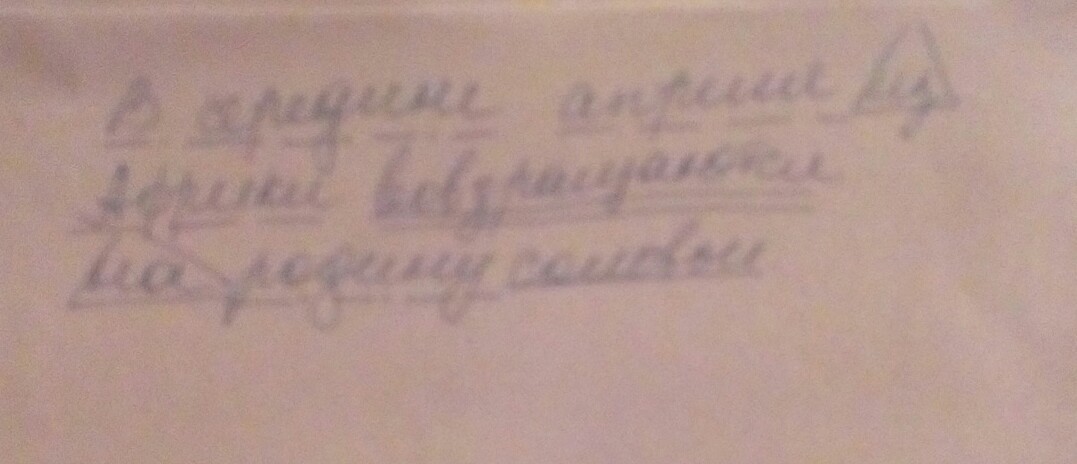 В середине апреля из
Африки возвращаются
на родину соловьи